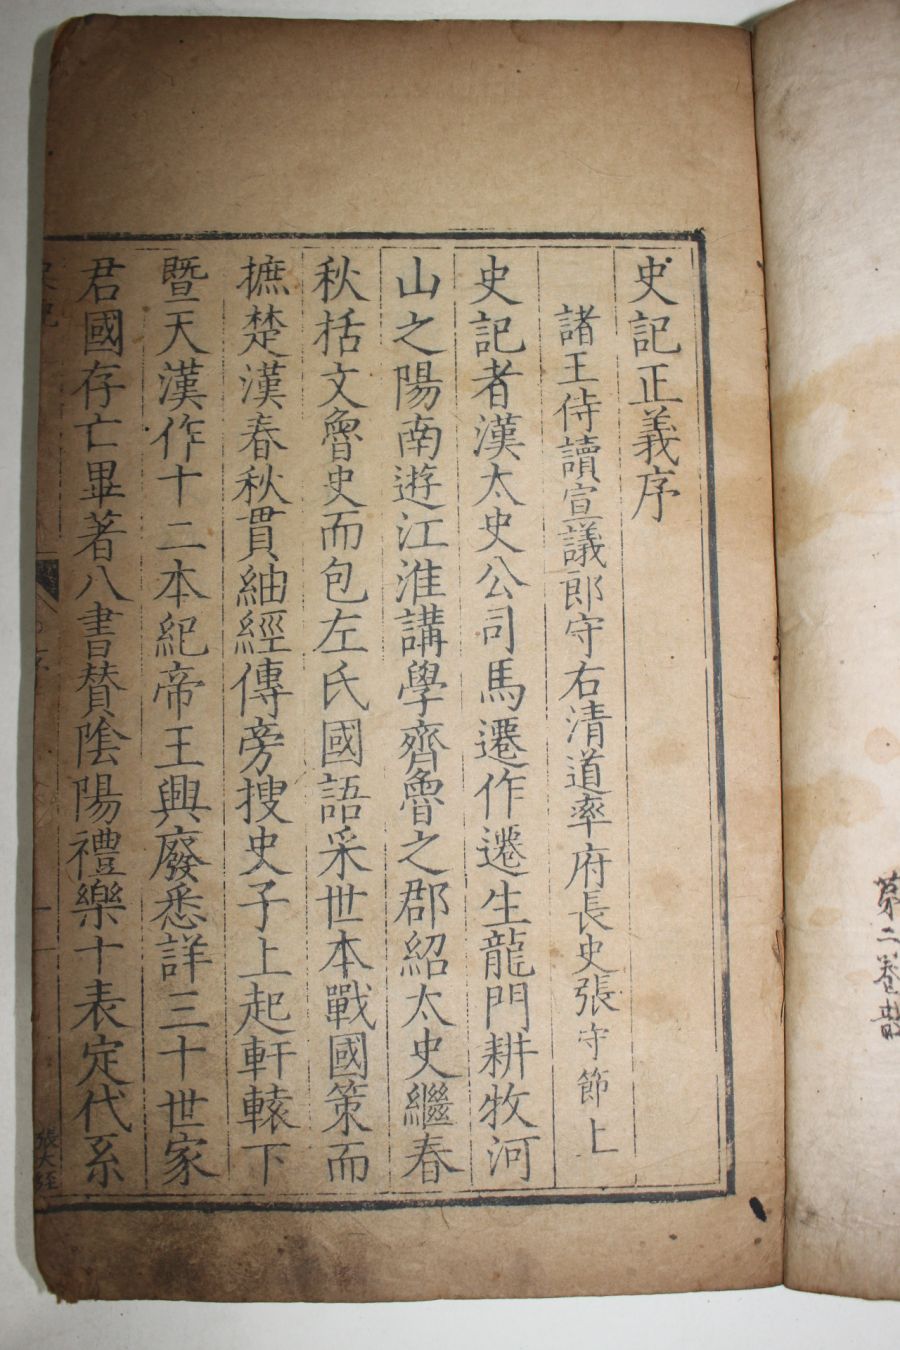 史記正義序
諸王侍讀宣議郎守右清道率府長史張守節上
史記者漢太史公司馬遷作遷生龍門耕牧河
山之陽南遊江淮講學齊魯之郡紹太史繼春
秋括文魯史而包左氏國語采世本戰國策而
摭楚漢春秋貫紬經傳旁搜史子上起軒轅下
暨天漢作十二本紀帝王興廢悉詳三十世家
君國存亡畢著八書賛陰陽禮樂十表定代系
第二卷